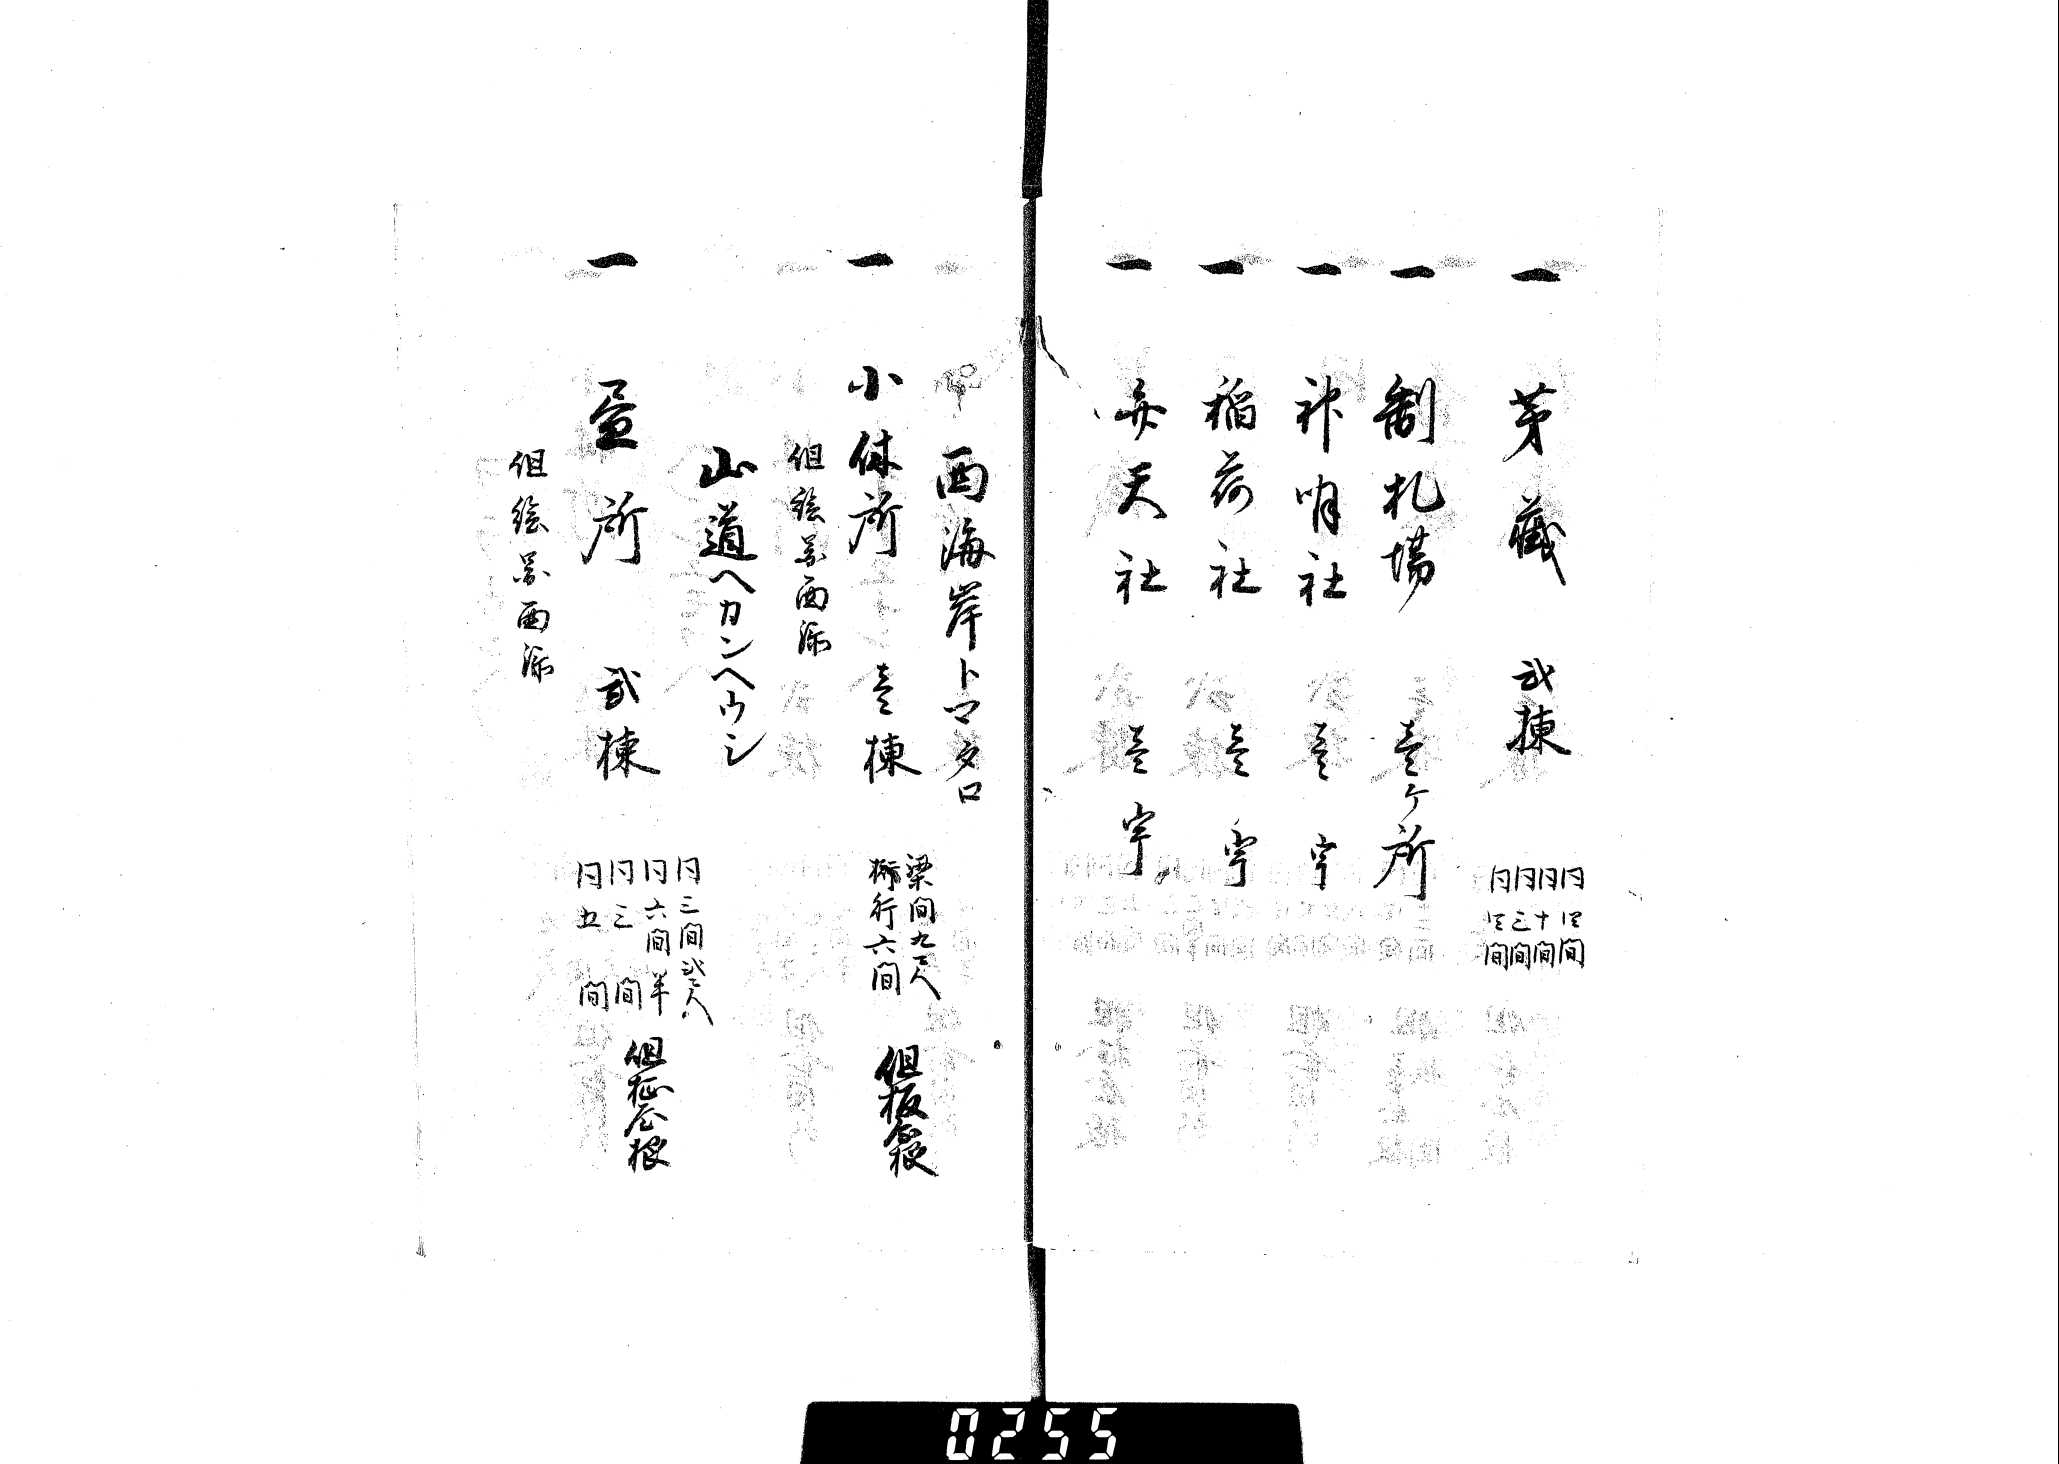 一 茅蔵 弐棟 同四間 同十間 同三間 同四間
一 制札場 壱ヶ所
一 神明社 壱宇
一 稲荷社 壱宇
一 弁天社 壱宇
西海岸トマタロ
一 小休所 壱棟 梁間九尺 桁行六間 但板蔵
但絵図面添
山道ヘカンヘウシ
一 昼所 弐棟 同三間弐尺 同六間半 同三間 同五間 但柾屋根
但絵図面添
0255